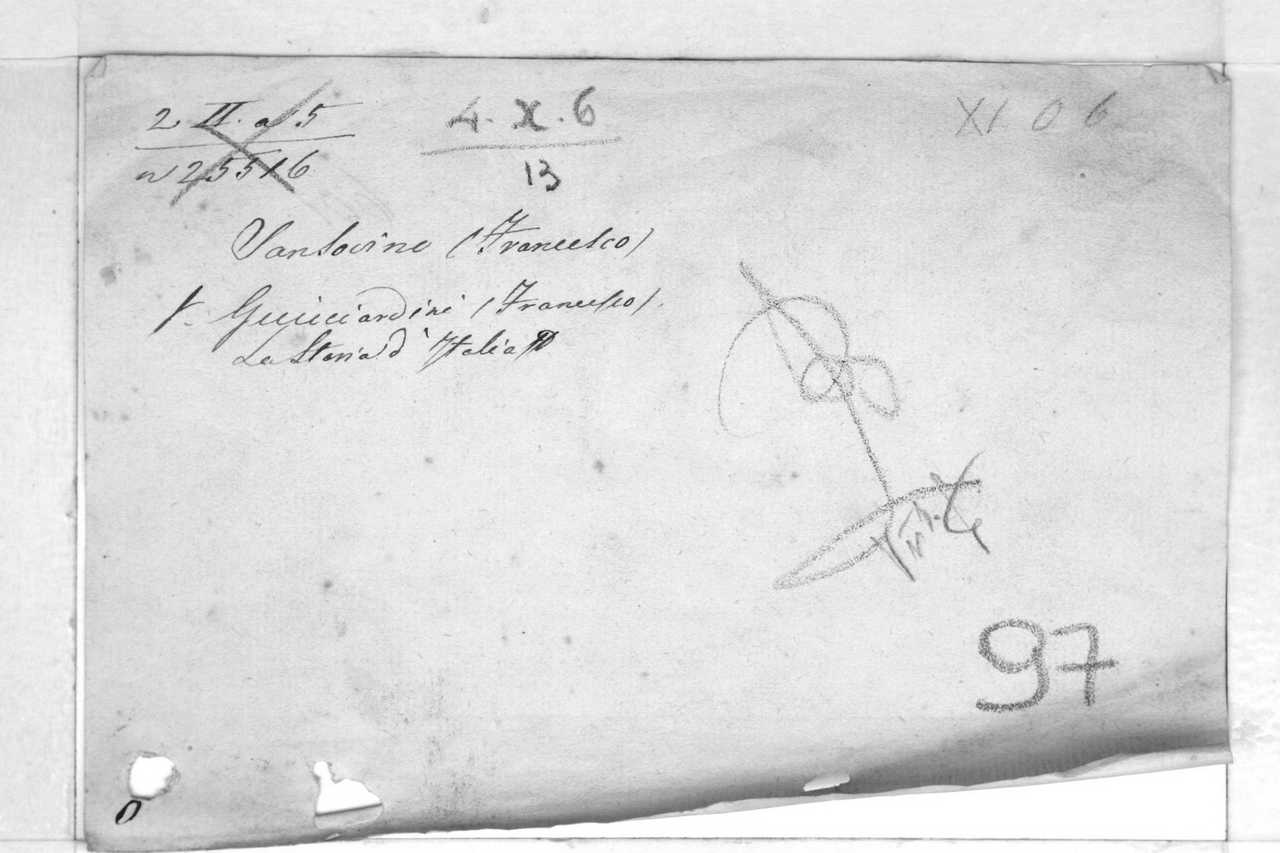 2 II. a 5
n 25516
4. X. 6
13
XI 0 6
Sansovino (Francesco)
V. Guicciardini (Francesco).
La Storia d'Italia
97
0